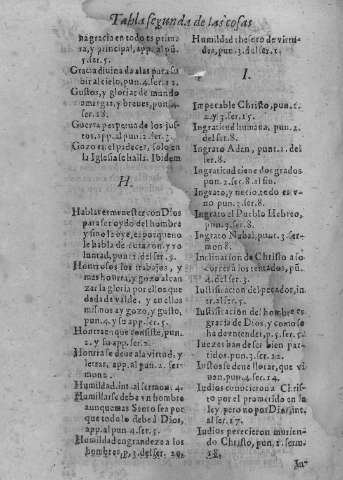 Tabla segunda de las cosas
na gracia en todo es prime
ra, y principal, app. al pũ.
5. ser. 5.
Gracia divina da alas para su
bir al cielo, pun. 4. ser. 12.
Gustos, y glorias de mundo
amargas, y breves, pun. 4.
ser. 18.
Guerra perpetua de los jus-
tos, app. al pun. 2. ser. 5.
Gozo es el padecer, solo en
la Iglesia se halla. Ibidem
H.
Hablar es menester con Dios
para ser oydo del hombre
y sino la oye, es porque no
le habla de coraçon, y vo
luntad, pun. 1. ser. 3.
Honrosos los trabajos, y
mas honra, y gozo alcan
zar la gloria por ellos que
dada de valde. y en ellos
mismos ay gozo, y gusto,
pun. 4. y su app. ser. 5.
Honra en que consiste, pun.
2. y su app. ser. 2.
Honra se deve a la virtud, y
letras, app. al pun. 2. ser-
mon 2.
Humildad. int. al sermon. 4.
Humillarse deba un hombre
aunque mas Santo sea por
que todo lo debe à Dios,
app. al pun. 4. ser. 5.
Humildad engrandeze a los
hombres, p. 3. del ser. 29.
Humildad thesoro de virtu-
des, pun. 3. del ser. 1.
I.
Impecable Christo, pun. 1.
2. y 3. ser. 15.
Ingratitud humana, pun. 2.
del ser. 8.
Ingrato Adan, punt. 1. del
ser. 8.
Ingratitud tiene dos grados
pun. 2. ser. 8. al fin.
Ingrato, y necio, todo es v-
no pun. 2. ser. 8.
Ingrato el Pueblo Hebreo,
pun. 3. ser. 8.
Ingrato Nabal, punt. 3. ser-
mon 8.
Inclinacion de Christo a so-
correr à los tentados, pũ.
4. del ser. 3.
Iustificacion del pecador, in
ter. al ser. 5.
Iustificacion del hombre es
gracia de Dios, y como se
ha de entender, p. 5. ser. 5.
Juezes han de ser bien par-
tidos. pun. 3. ser. 22.
Iustos se deve llorar, que vi
van. pun. 4. ser. 14.
Iudios conocieron a Chris-
to por el prometido en la
ley, pero no por Dios, int.
al ser. 17.
Iudios perecieron murien-
do Christo, pun. 1. sermo.
18.
Iu-